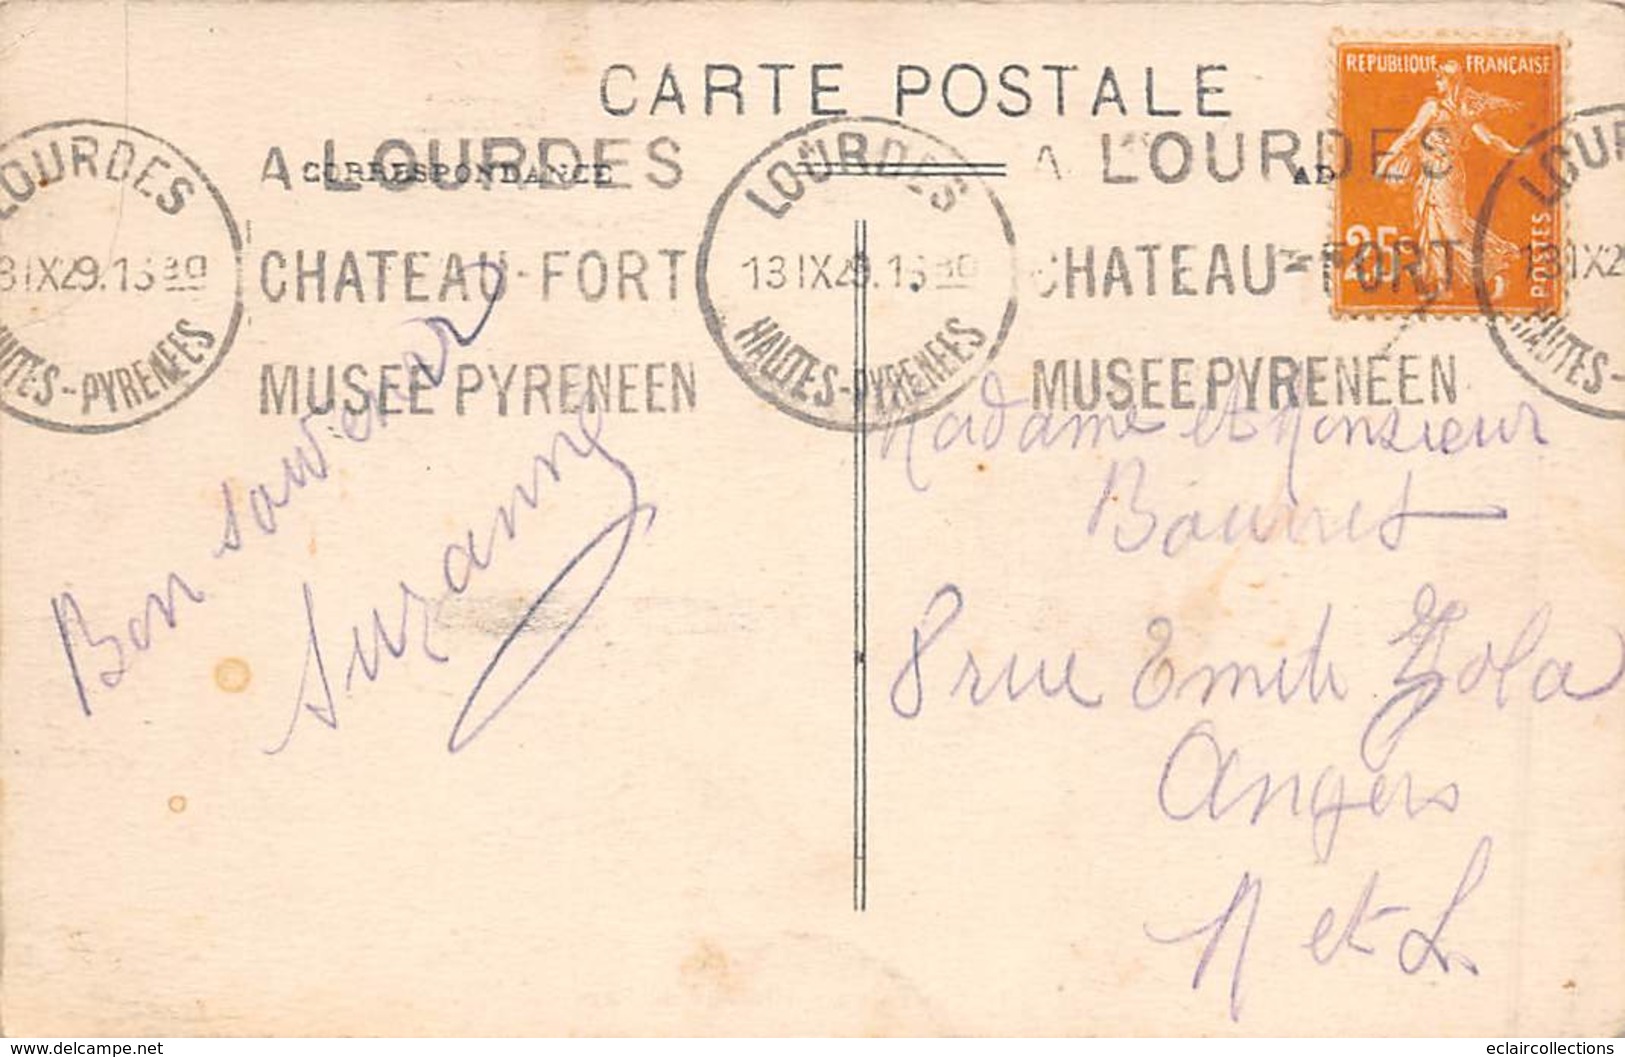 CARTE POSTALE
REPUBLIQUE FRANÇAISE
25c
POSTES
CORRESPONDANCE
AD
LOURDES
13 IX 29. 1530
HAUTES-PYRENEES
A LOURDES
CHATEAU-FORT
MUSEE PYRENEEN
LOURDES
13 IX 29. 1530
HAUTES-PYRENEES
A LOURDES
CHATEAU-FORT
MUSEE PYRENEEN
LOUR
13 IX 2
HAUTES-
Bon souvenir
Suzanne
Madame et Monsieur
8 rue Emile Zola
Angers
M et L.
www.delcampe.net
eclaircollections